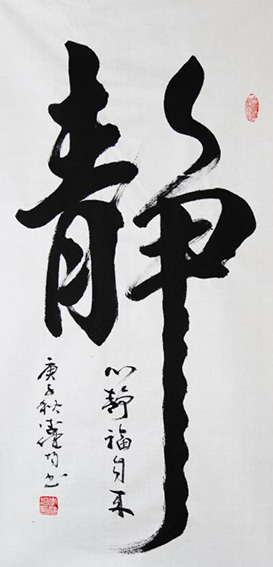 静
心静福自来
庚子秋 书